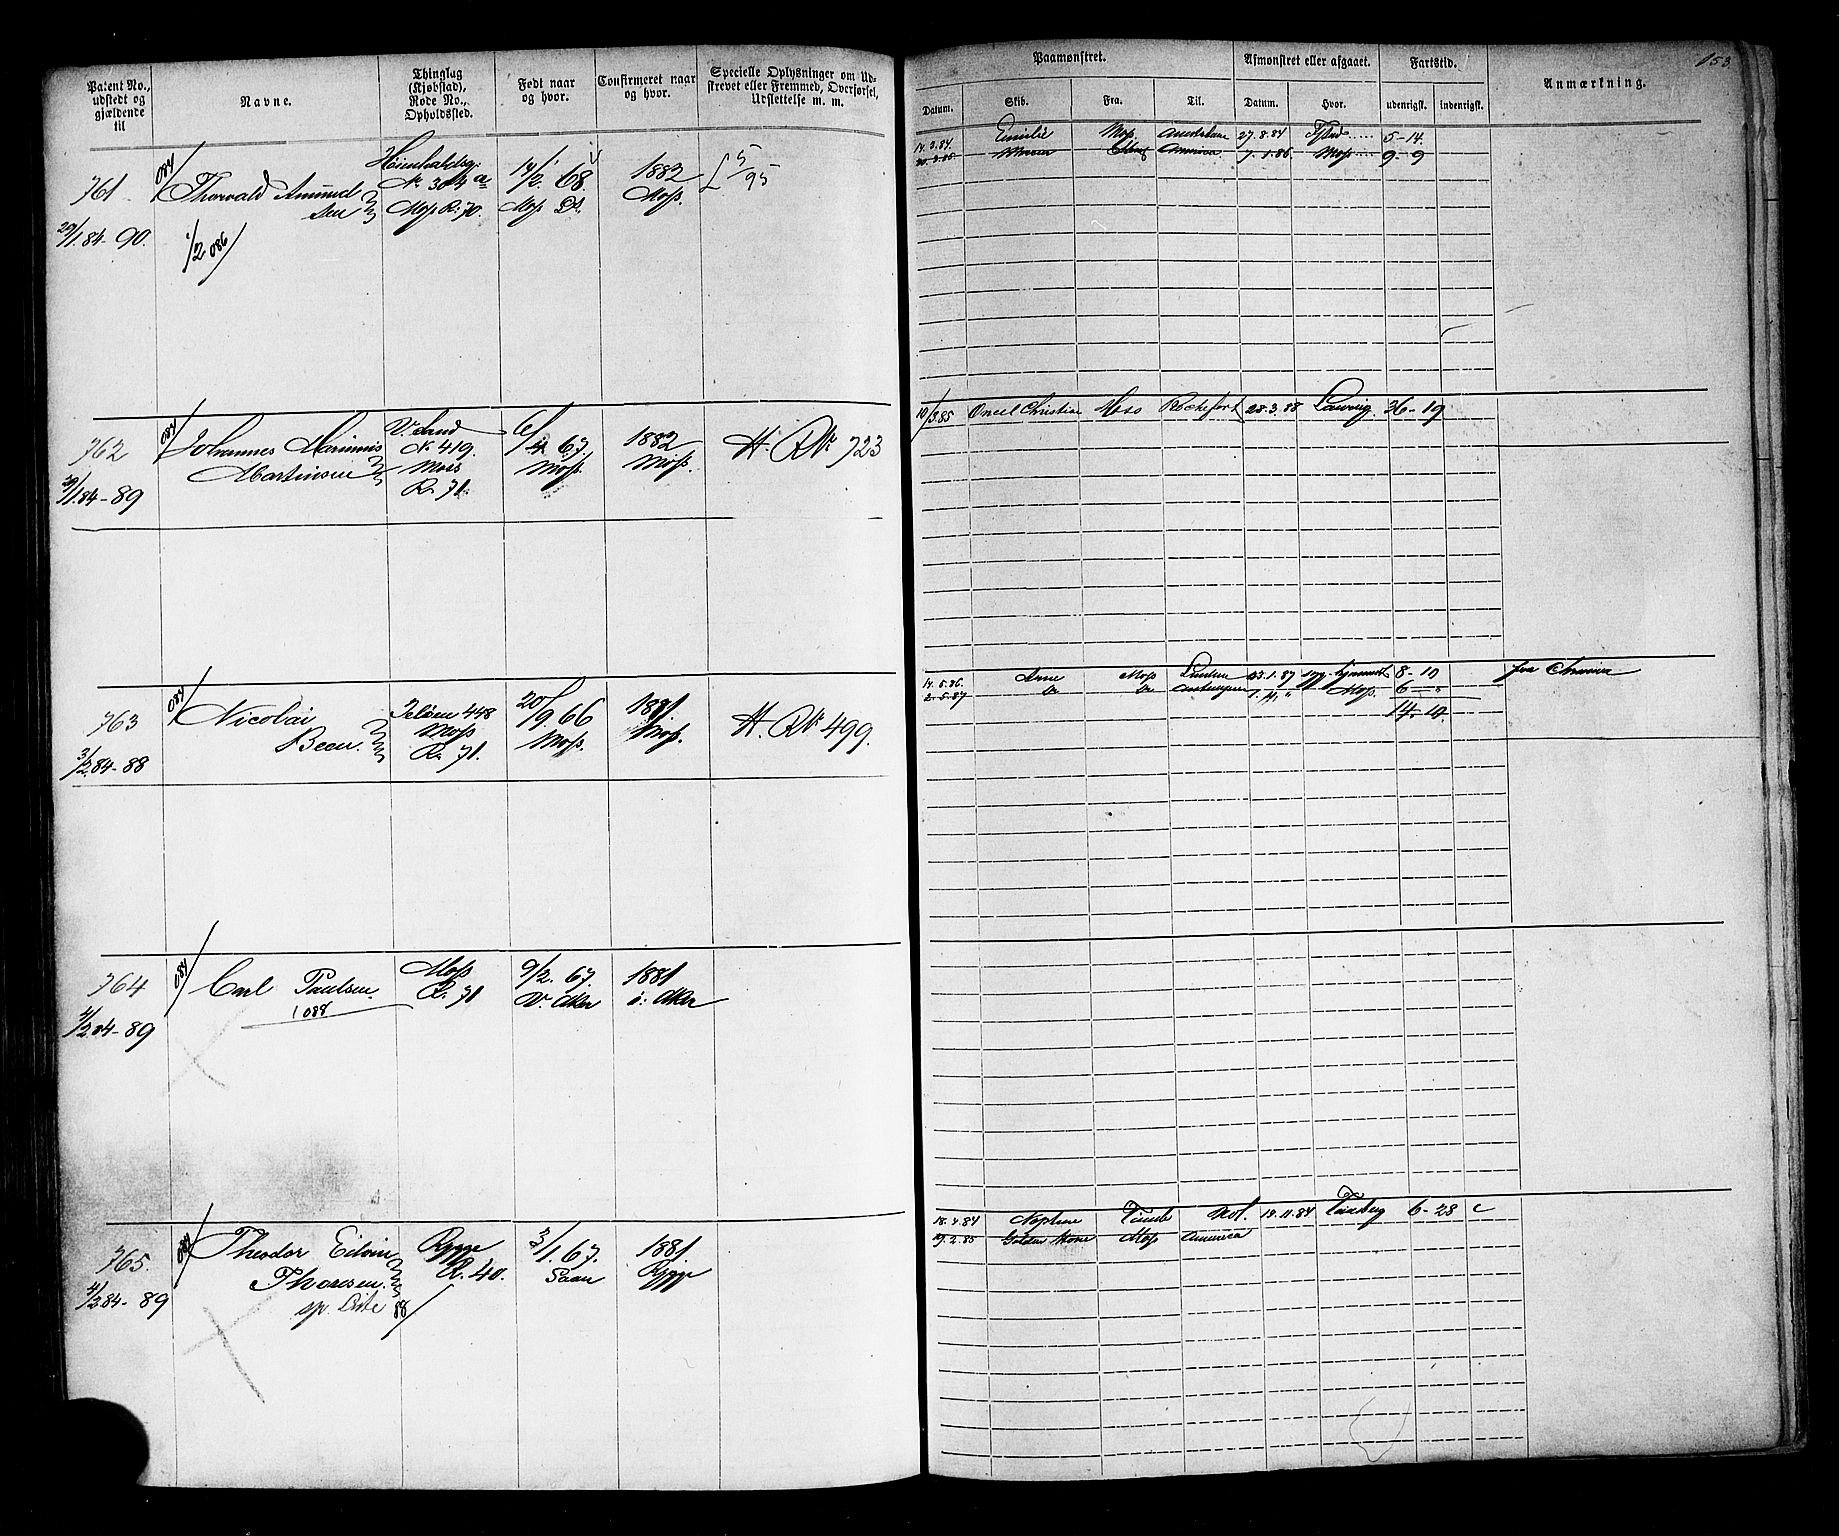 Patent No., udstedt og gjældende til
Navne.
Thinglag (Kjøbstad), Rode No., Opholdssted.
Født naar og hvor.
Confirmeret naar og hvor.
Specielle Oplysninger om Udstrevet eller Fremmed, Overførsel, Udslettelse m. m.
Paamønstret.
Afmønstret eller afgaaet.
Fartstid.
Anmærkning.
153.
Datum.
Skib.
Fra.
Til.
Datum.
Hvor.
udenrigsk.
indenrigsk.
761
29/1.84-90.
084
Thorvald Amund
sen
1/2 086
No 304 a
Moss R. 70.
14/2. 68.
Moss
1882
Moss.
5/95
14.3.84 Emilie Moss 27.8.84 5-14.
America 7.1.86. Moss 9-9
762
29/1.84-89
084
Johannes Marinius
Martinsen
V. Sand
No 419.
Moss
R. 71.
67.
Moss.
1882
Moss.
H. R No 723
10/3.85 Oncel Christian Moss Rochefort 28.3.88 Laurvig 36-19
763
3/2.84-88
084
Nicolai
Beau.
Jeløen 448
Moss
R. 71.
20/9 66
Moss.
1881
Moss.
H. R No 499.
14.5.86. Arne Moss London 23.1.87 8-10
2.5.87 Do Do Antwerpen Moss. 6
14-10.
fra America
764
4/2.84-89
084
Carl Paulsen.
1088
Moss
R. 71
9/2. 67.
V. Aker
1881
V. Aker
765.
4/2.84-89
084
Theodor Eilvin
Thoresen.
sp. Liste 88
Rygge
R. 40.
3/1. 67.
Saan
1881
Rygge
18.4.84 Neptune 13.11.84 Tønsberg 6-28
19.2.85 Golden Moss America